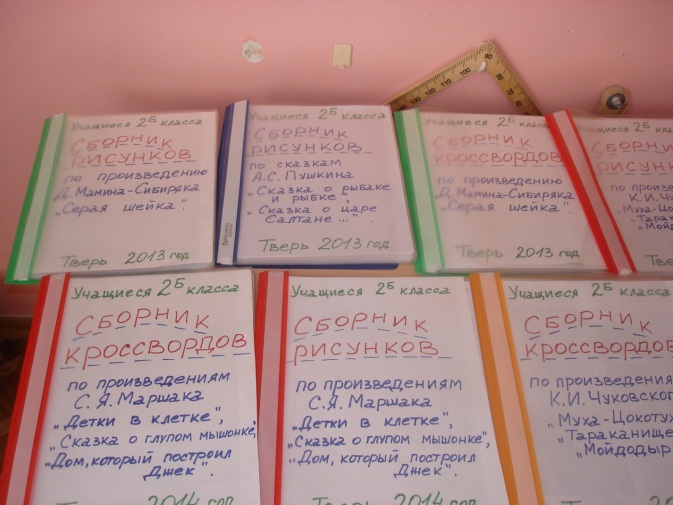 Учащиеся 2Б класса
Сборник
рисунков
по произведению
Д. Мамина-Сибиряка
„Серая шейка".
Тверь 2013 год
Учащиеся 2Б класса
Сборник
рисунков
по сказкам
А.С. Пушкина
„Сказка о рыбаке
и рыбке",
„Сказка о царе
Салтане..."
Тверь 2013 год
Учащиеся 2Б класса
Сборник
кроссвордов
по произведению
Д. Мамина-Сибиряка
„Серая шейка".
Тверь 2013 год
Учащиеся 2
Сборни
рисун
по произве
К.И. Чу
„Муха-Цо
„Таракан
„Мойд
Тверь
Учащиеся 2Б класса
Сборник
кроссвордов
по произведениям
С.Я. Маршака
„Детки в клетке",
„Сказка о глупом мышонке",
„Дом, который построил
Джек".
Тверь 2014 год
Учащиеся 2Б класса
Сборник
рисунков
по произведениям
С.Я. Маршака
„Детки в клетке",
„Сказка о глупом мышонке",
„Дом, который построил
Джек".
Тверь 2014 год
Учащиеся 2Б класса
Сборник
кроссвордов
по произведения
К.И. Чуковског
„Муха-Цокоту
„Тараканище
„Мойдодыр